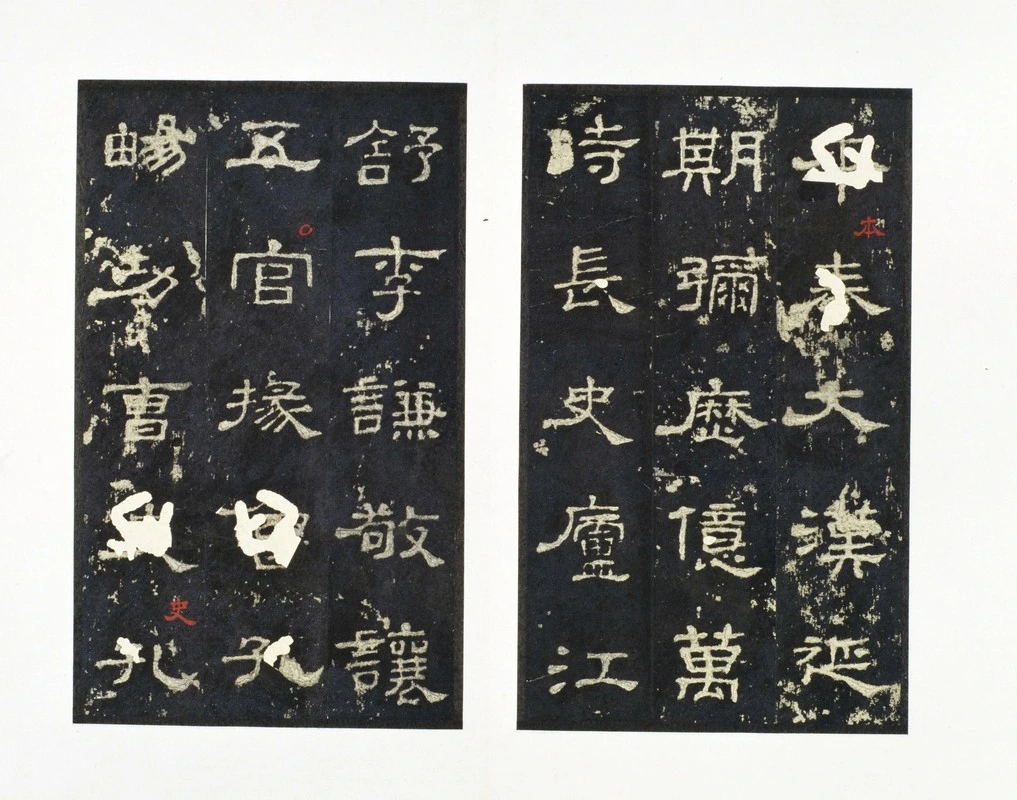 本奏大漢延
期彌歷億萬
時長史廬江
舒李謙敬讓
五官掾魯孔
暢功曹史孔
本
史